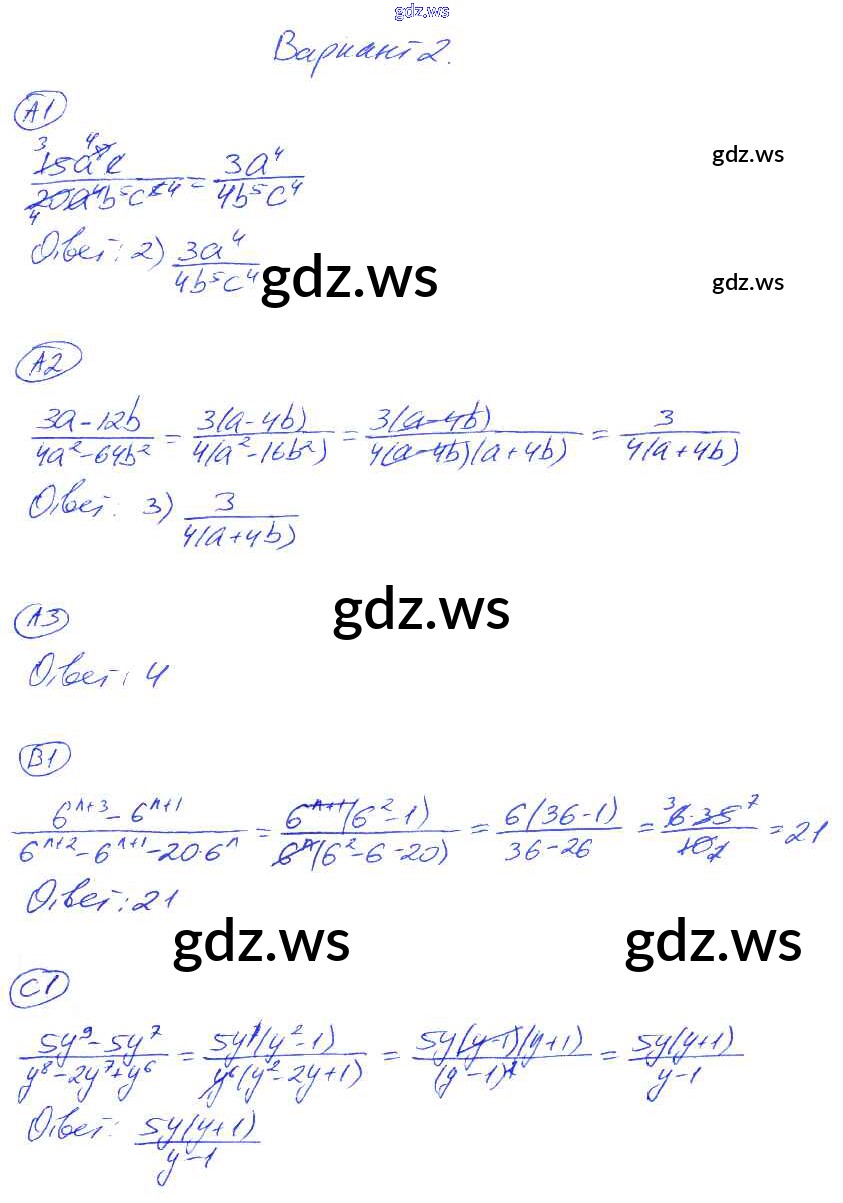 gdz.ws
Вариант 2.
А1
15a⁸c / 20a⁴b⁵c⁵ = 3a⁴ / 4b⁵c⁴
gdz.ws
Ответ: 2) 3a⁴ / 4b⁵c⁴
gdz.ws
gdz.ws
А2
3a-12b / 4a²-64b² = 3(a-4b) / 4(a²-16b²) = 3(a-4b) / 4(a-4b)(a+4b) = 3 / 4(a+4b)
Ответ: 3) 3 / 4(a+4b)
А3
gdz.ws
Ответ: 4
В1
6ⁿ⁺³-6ⁿ⁺¹ / 6ⁿ⁺²-6ⁿ⁺¹-20·6ⁿ = 6ⁿ⁺¹(6²-1) / 6ⁿ(6²-6-20) = 6(36-1) / 36-26 = 6·35 / 10 = 21
Ответ: 21
gdz.ws
gdz.ws
С1
5y⁹-5y⁷ / y⁸-2y⁷+y⁶ = 5y⁷(y²-1) / y⁶(y²-2y+1) = 5y(y-1)(y+1) / (y-1)² = 5y(y+1) / y-1
Ответ: 5y(y+1) / y-1